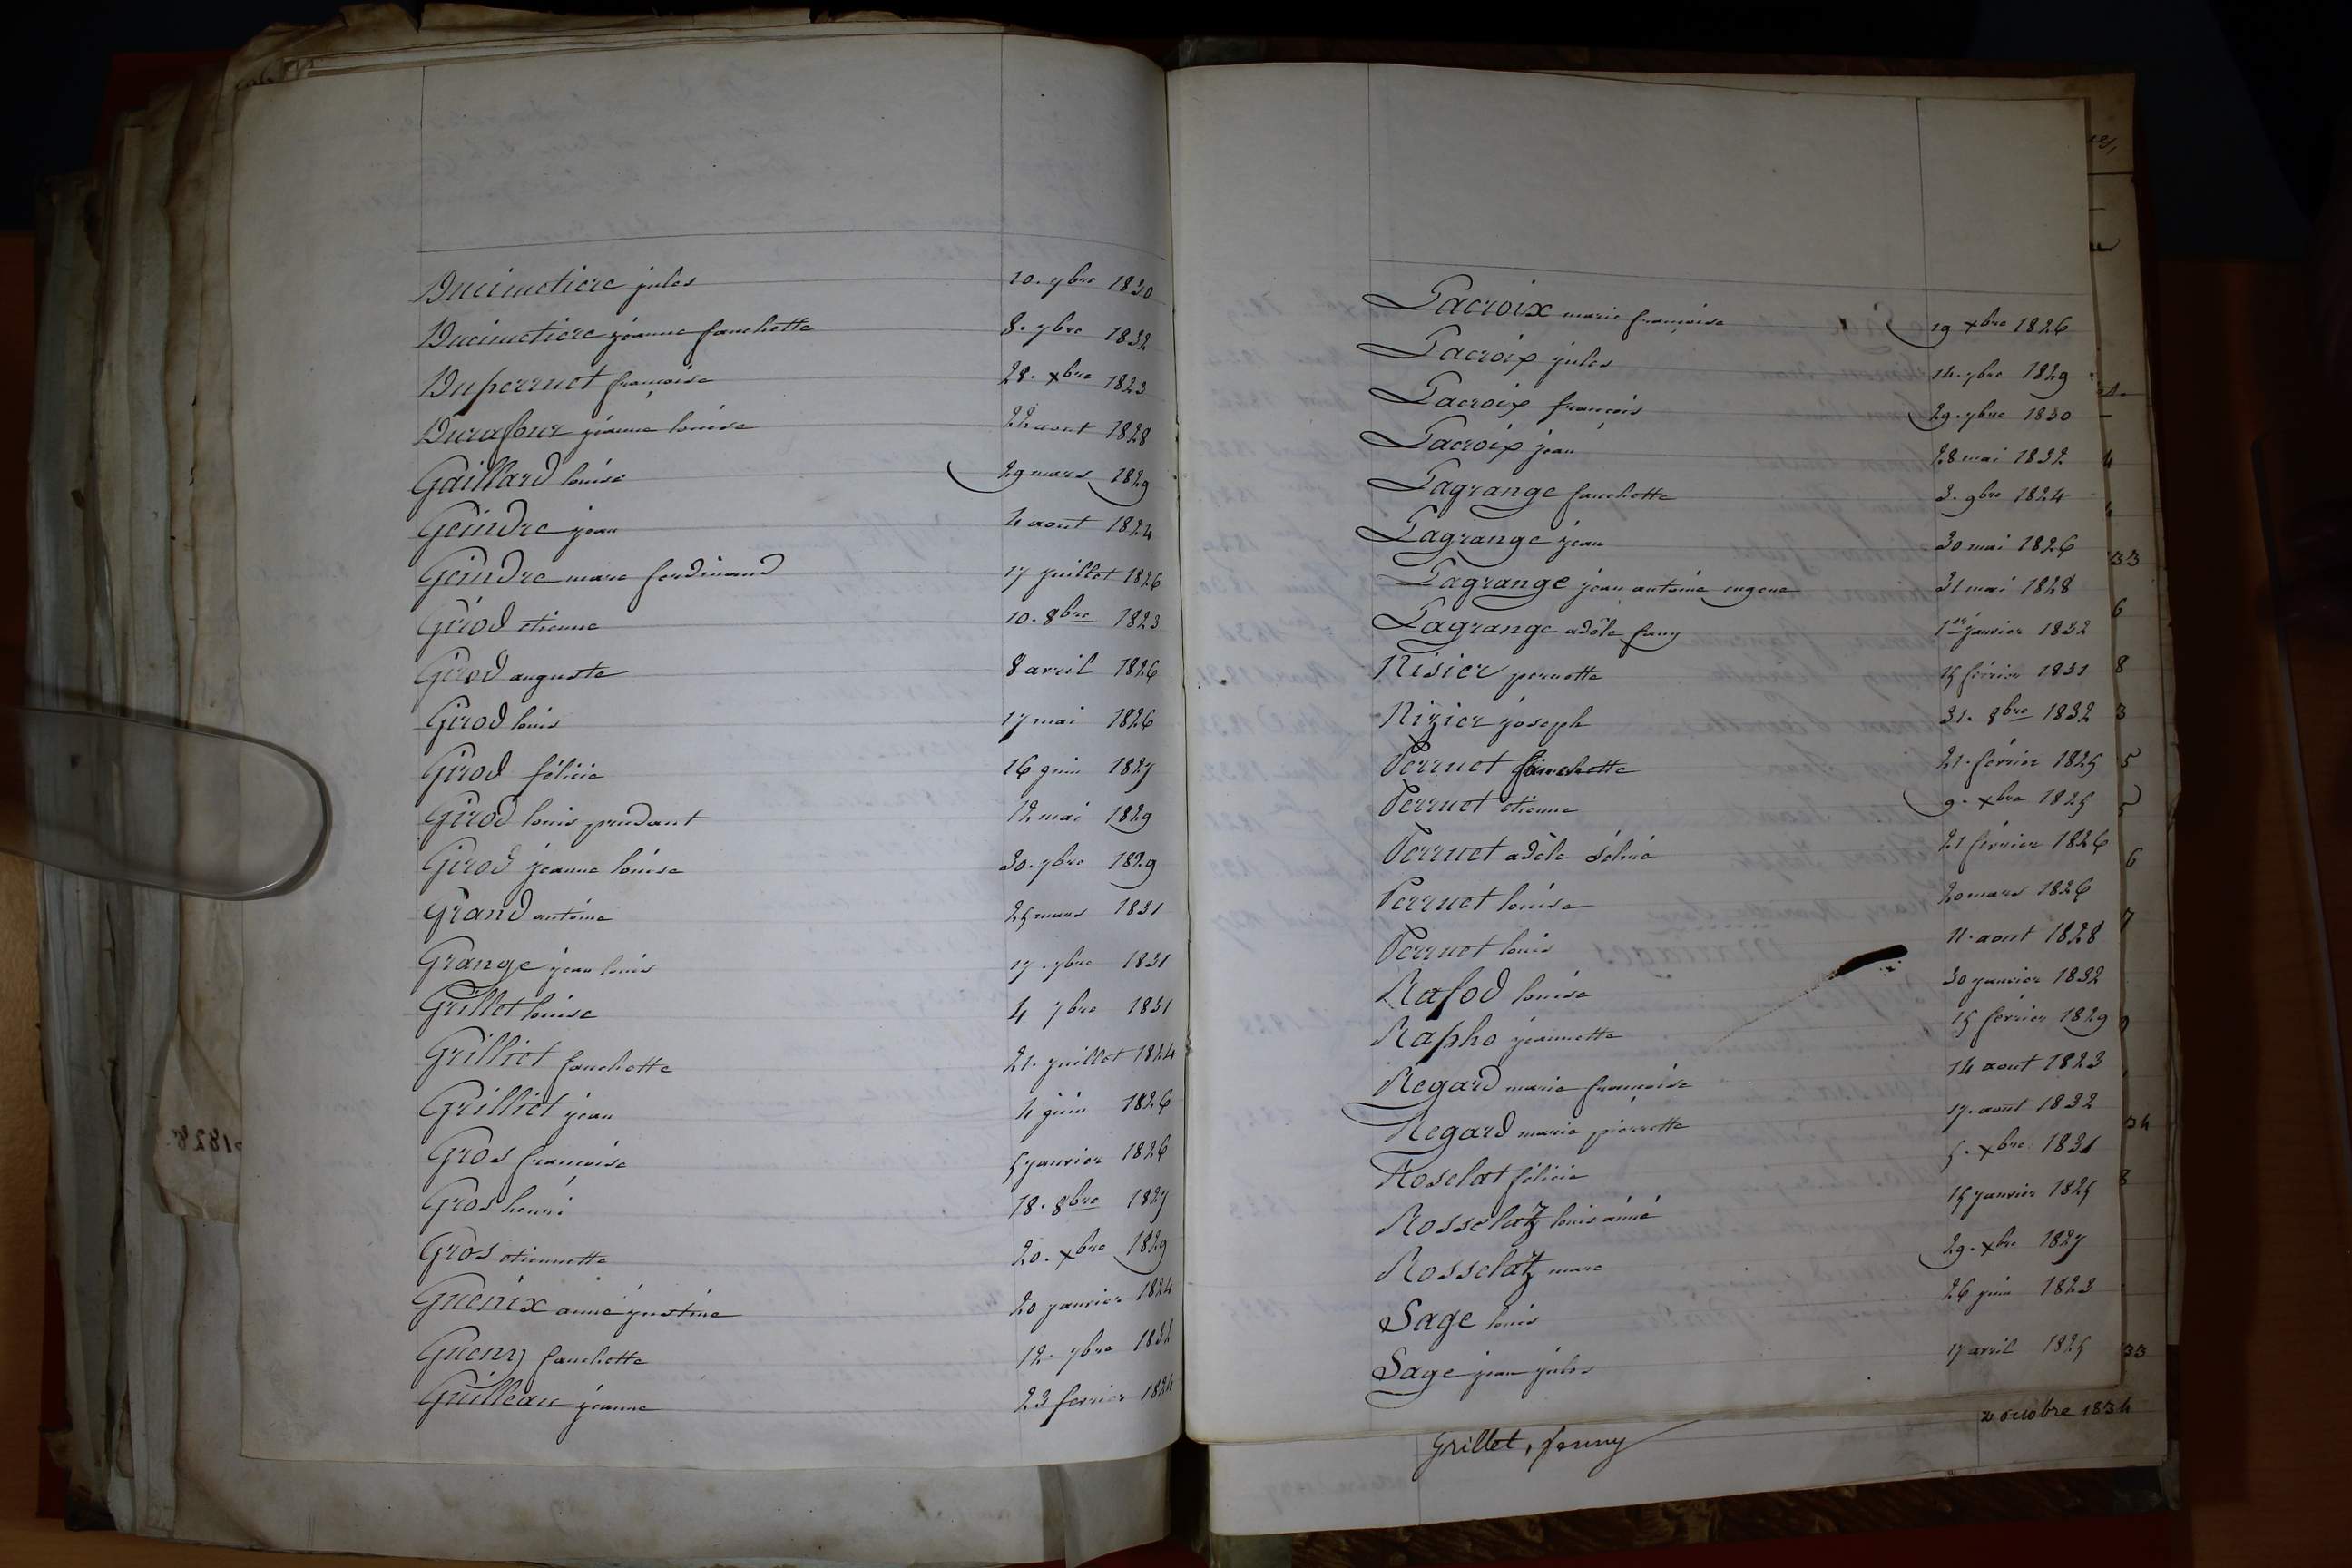 Ducimetiere jules 10. 7bre 1830
Ducimetiere jeanne fanchette 8. 7bre 1832
Dupernet françoise 28. xbre 1823
Durafour jeanne louise 22 aout 1828
Gaillard louise 29 mars 1829
Geindre jean 4 aout 1824
Geindre marc ferdinand 17 juillet 1826
Girod etienne 10. 8bre 1823
Girod auguste 8 avril 1826
Girod louis 17 mai 1826
Girod félicie 16 juin 1827
Girod louis prudant 12 mai 1829
Girod jeanne louise 30. 7bre 1829
Grand antoine 25 mars 1831
Grange jean louis 17. 7bre 1831
Grillet louise 4 7bre 1831
Grilliet fanchette 21. juillet 1824
Grilliet jean 4 juin 1826
Gros françoise 5 janvier 1826
Gros henri 18. 8bre 1827
Gros etiennette 20. xbre 1829
Guenix aimé justine 20 janvier 1824
Gueny fanchette 12. 7bre 1832
Guilleau jeanne 23 fevrier 1824
Lacroix marie françoise 19 xbre 1826
Lacroix jules 14. 7bre 1829
Lacroix francois 29. 7bre 1830
Lacroix jean 28 mai 1832
Lagrange fanchette 3. 9bre 1824
Lagrange jean 30 mai 1826
Lagrange jean antoine eugene 31 mai 1828
Lagrange adèle fany 1er janvier 1832
Nisier pernette 15 février 1831
Nizier joseph 31. 8bre 1832
Pernet fanchette 21. février 1825
Pernet etienne 9. xbre 1825
Pernet adèle 21 février 1826
Pernet louise 20 mars 1826
Pernet louis 11. aout 1828
Rafod louise 30 janvier 1832
Rapho jeannette 15 février 1829
Regard marie françoise 14 aout 1823
Regard marie pierrette 17. aout 1832
Roselat félicie 5. xbre 1831
Rosselatz louis aimé 15 janvier 1825
Rosselatz marc 29. xbre 1827
Sage louis 26 juin 1823
Sage jean jules 17 avril 1825
Grillet, fanny 2 octobre 1834